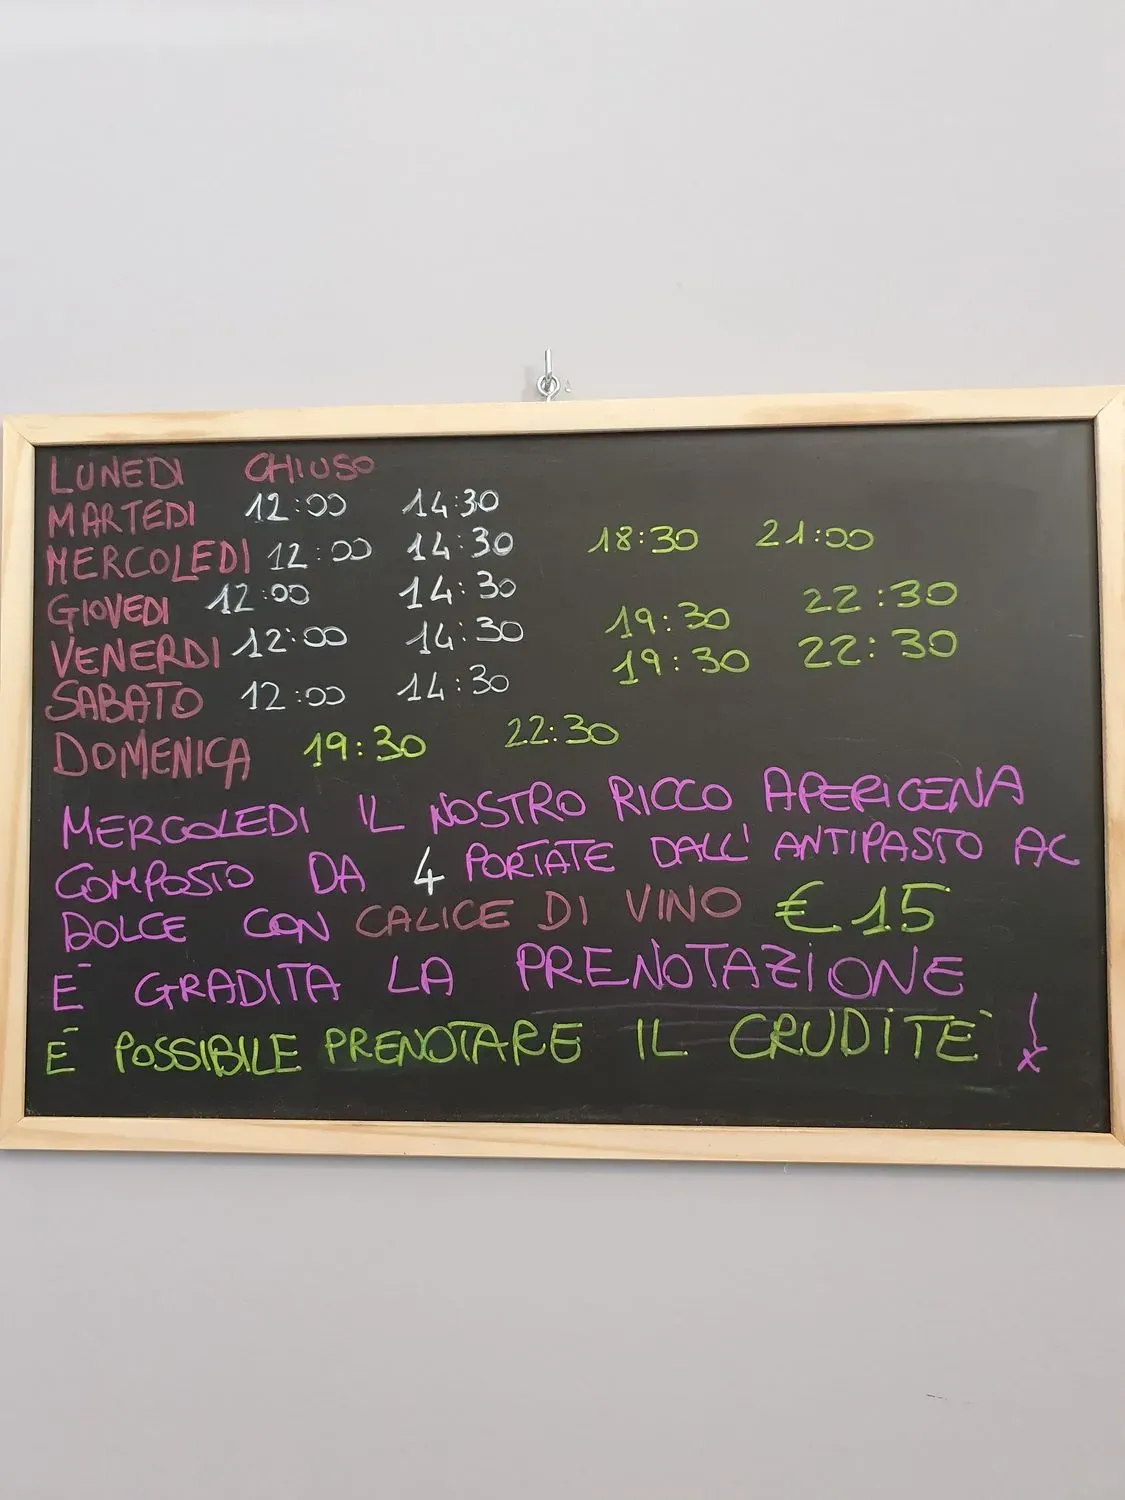 LUNEDI CHIUSO
MARTEDI 12:00 14:30
MERCOLEDI 12:00 14:30 18:30 21:00
GIOVEDI 12:00 14:30
VENERDI 12:00 14:30 19:30 22:30
SABATO 12:00 14:30 19:30 22:30
DOMENICA 19:30 22:30
MERCOLEDI IL NOSTRO RICCO APERICENA
COMPOSTO DA 4 PORTATE DALL' ANTIPASTO AL
DOLCE CON CALICE DI VINO € 15
È GRADITA LA PRENOTAZIONE
È POSSIBILE PRENOTARE IL CRUDITÈ !